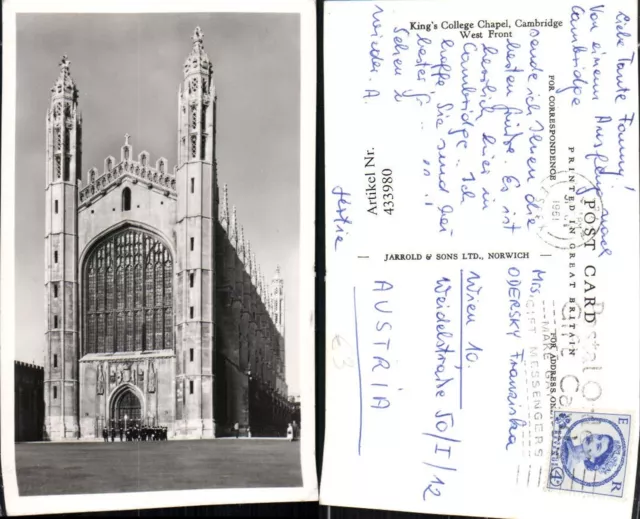 King's College Chapel, Cambridge
West Front
Liebe Tante Fanny!
Von einem Ausflug nach
Cambridge
sende ich Ihnen die
besten Grüße. Es ist
herrlich hier in
Cambridge. Ich
hoffe Sie sind bei
bester
Sehen
wieder. A.
FOR CORRESPONDENCE
Artikel Nr.
433980
POST CARD
PRINTED IN GREAT BRITAIN
JARROLD & SONS LTD., NORWICH
FOR ADDRESS ONLY
1961
GIFT MESSENGERS
Postal O
Gift Ca
ODERSKY Franziska
Wien 10.
Weidelstraße 50/I/12
AUSTRIA
€3
E R
4D